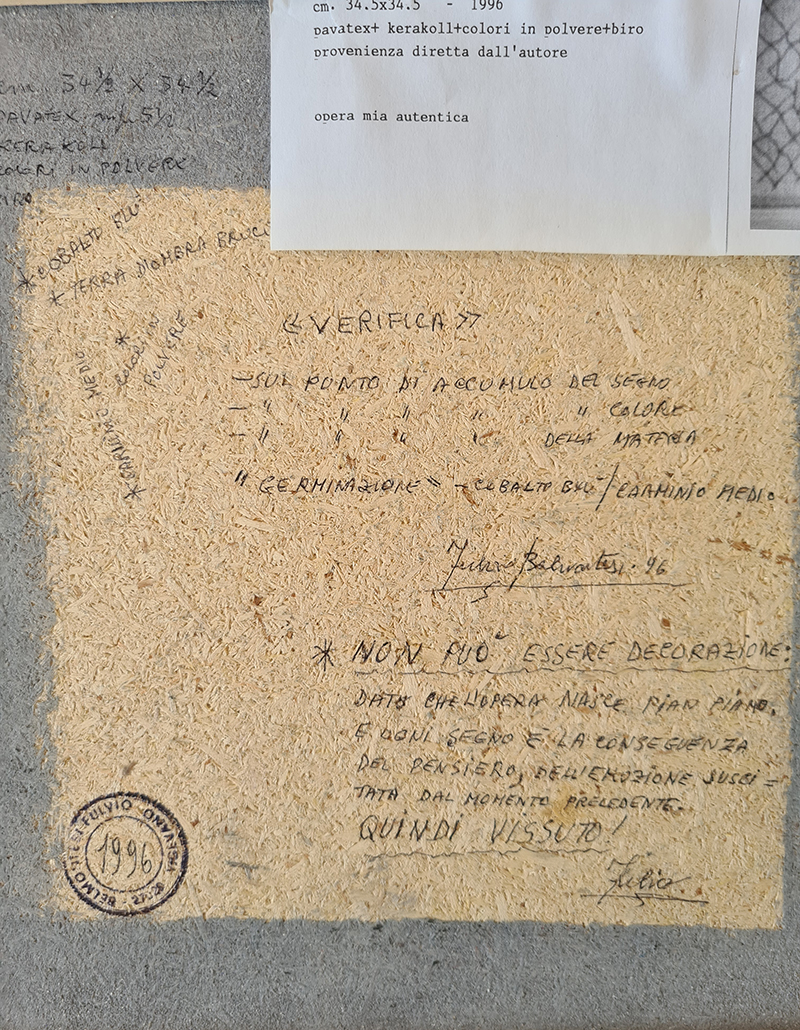 cm. 34.5x34.5 - 1996
pavatex+ kerakoll+colori in polvere+biro
provenienza diretta dall'autore
opera mia autentica
cm. 34½ X 34½
PAVATEX m/m 5½
KERAKOLL
COLORI IN POLVERE
BIRO
* COBALTO BLU
* TERRA D'OMBRA BRUCI
* COLORI IN
POLVERE
* CARMINIO MEDIO
« VERIFICA »
- SUL PUNTO DI ACCUMULO DEL SEGNO
- " " " " " COLORE
- " " " " DELLA MATERIA
"GERMINAZIONE" - COBALTO BLU / CARMINIO MEDIO
Fulvio 96
* NON PUO' ESSERE DECORAZIONE:
DATO CHE L'OPERA NASCE PIAN PIANO,
E OGNI SEGNO È LA CONSEGUENZA
DEL PENSIERO, DELL'EMOZIONE SUSCI=
TATA DAL MOMENTO PRECEDENTE.
QUINDI VISSUTO!
Fulvio
FULVIO
1996